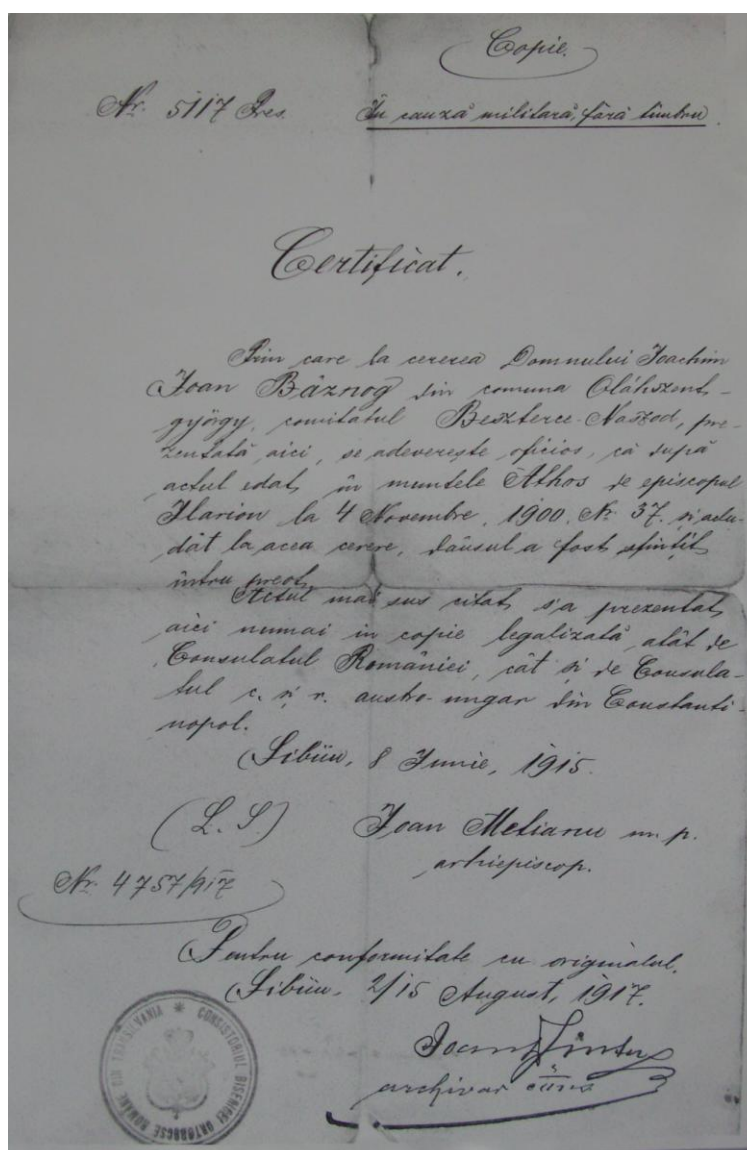 Copie.
Nr. 5117 Pres. În cauză militară, fără timbru.
Certificat.
Prin care la cererea Domnului Joachim
Joan Bâznog din comuna Oláhszent-
györgy, comitatul Beszterce-Naszod, pre-
zentată aici, se adeverește oficios, că după
actul edat, în muntele Athos de episcopul
Ilarion la 4 Novembre, 1900, Nr. 37. și aclu-
dat la acea cerere, dânsul a fost sfințit,
întru preot.
Actul mai sus citat, s'a prezentat,
aici numai in copie legalizată atât de
Consulatul României, cât și de Consula-
tul c. și r. austro-ungar din Constanti-
nopol.
Sibiiu, 8 Iunie, 1915.
(L. S.) Joan Metianu m. p.
arhiepiscop.
Nr. 4757/917
Pentru conformitate cu originalul.
Sibiiu, 2/15 August, 1917.
Joan
archivar
CONSISTORIUL BISERICII ORTODOCSE ROMÂNE DIN TRANSILVANIA